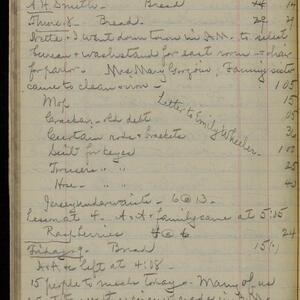 A H Smith - Bread 44 14
Thurs. 8 - Bread. 29 29
Nette & I went down town in A.M. to select
bureau & washstand for east room - chair
for parlor. Mrs. Mary
came to clean & iron - 1 05
Mop 15
Letter to Emily Wheeler
Cracker - old debt 05
Curtain rods & brackets 30
Suit for Keyes 1 00
Trousers " " 25
Hose - " " 45
Jersey underwaists - 6 @ 13 -
Lesson at 4. A. & A & family came at 5:05
Raspberries 4 @ 6 24
Friday 9. Bread 15
A & A. left at 4:08 -
15 people to meals today. Many of us